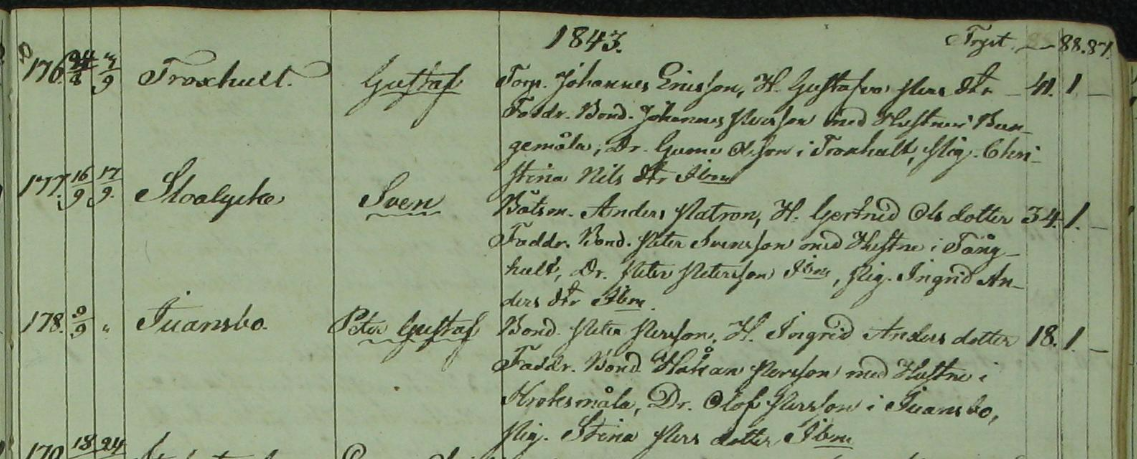 1843. Trspt. — 88.87.
176. 24/8 3/9 Troxhult. Gustaf Torp. Johannes Ericsson, H. Gustafva Pers dtr — 41. 1. —
Faddr. Bond. Johannes Persson med Hustru i Bun-
gemåla, Dr. Gumme Olsson i Troxhult, Pig. Chri-
stina Nils dtr Ibm
177. 16/9 17/9. Skoalycke Sven Båtsm. Anders Patron, H. Gertrud Ols dotter 34. 1. —
Faddr. Bond. Peter Svensson med Hustru i Tång-
hult, Dr. Peter Petersson Ibm, Pig. Ingrid An-
ders dtr Ibm.
178. /9 „ Iuansbo. Peter Gustaf Bond. Peter Persson, H. Ingrid Anders dotter 18. 1. —
Faddr. Bond Håkan Persson med Hustru i
Kroksmåla, Dr. Olof Persson i Iuansbo,
Pig. Stina Pers dotter, Ibm
179. 18 24